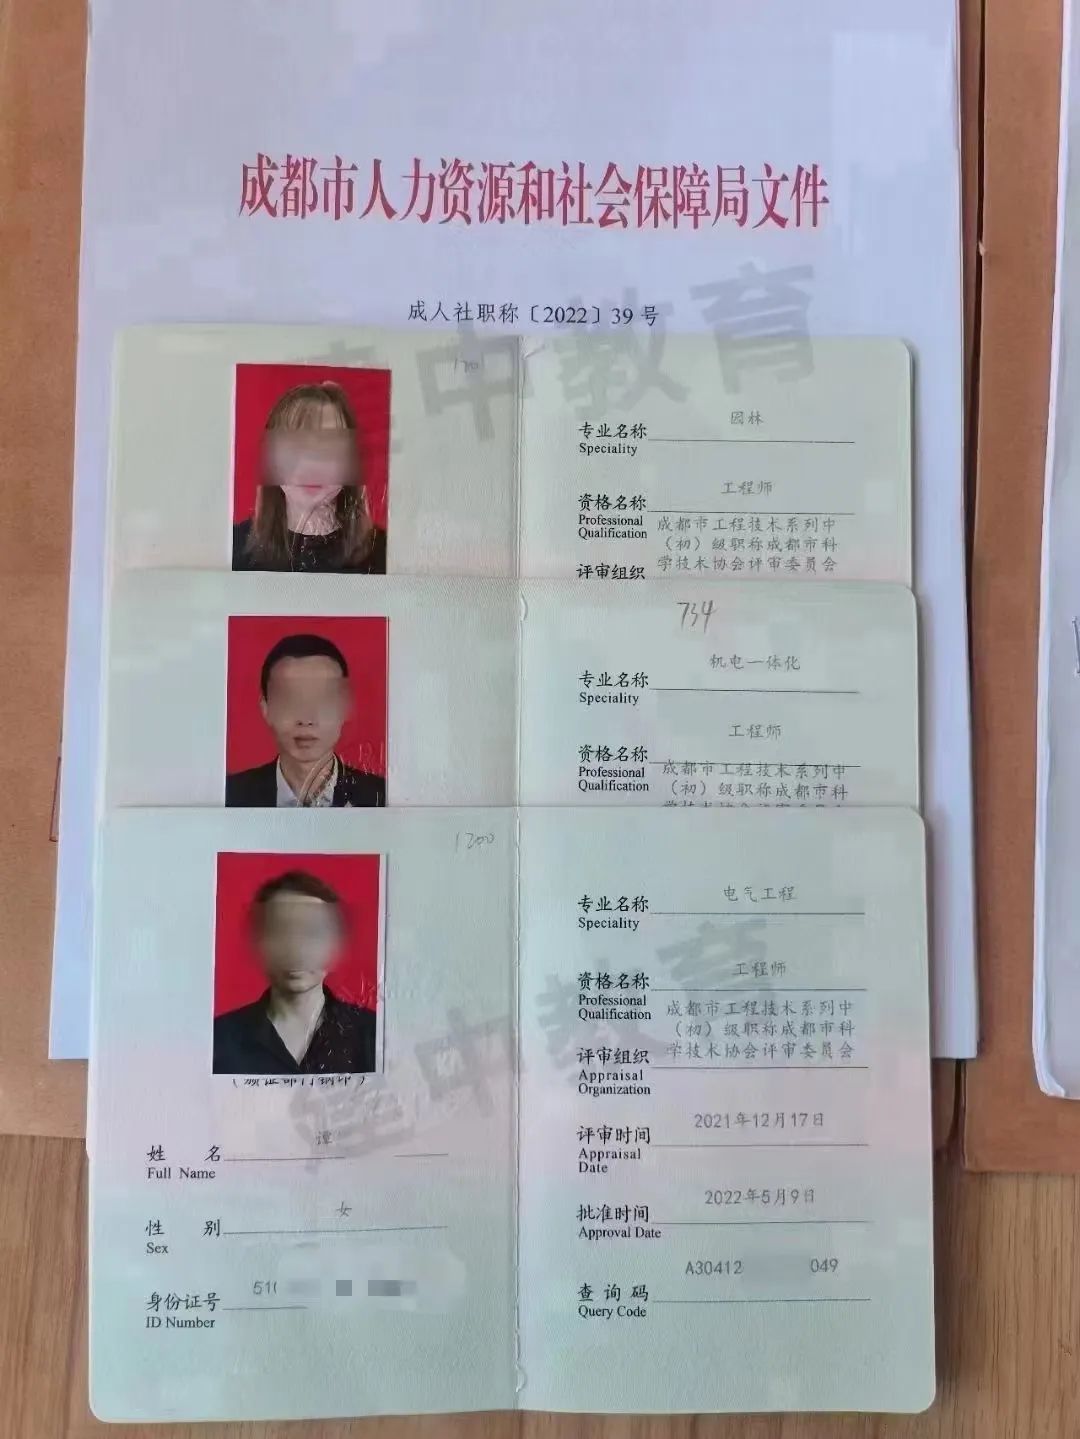 成都市人力资源和社会保障局文件
成人社职称〔2022〕39号
中教育
专业名称 园林
Speciality
资格名称 工程师
Professional
Qualification
成都市工程技术系列中
（初）级职称成都市科
学技术协会评审委员会
评审组织
734
专业名称 机电一体化
Speciality
资格名称 工程师
Professional
Qualification
成都市工程技术系列中
（初）级职称成都市科
1200
专业名称 电气工程
Speciality
资格名称 工程师
Professional
Qualification
成都市工程技术系列中
（初）级职称成都市科
学技术协会评审委员会
评审组织
Appraisal
Organization
评审时间 2021年12月17日
Appraisal
Date
批准时间 2022年5月9日
Approval Date
查询码 A30412 049
Query Code
姓名 谭
Full Name
性别 女
Sex
身份证号 51
ID Number
中教育